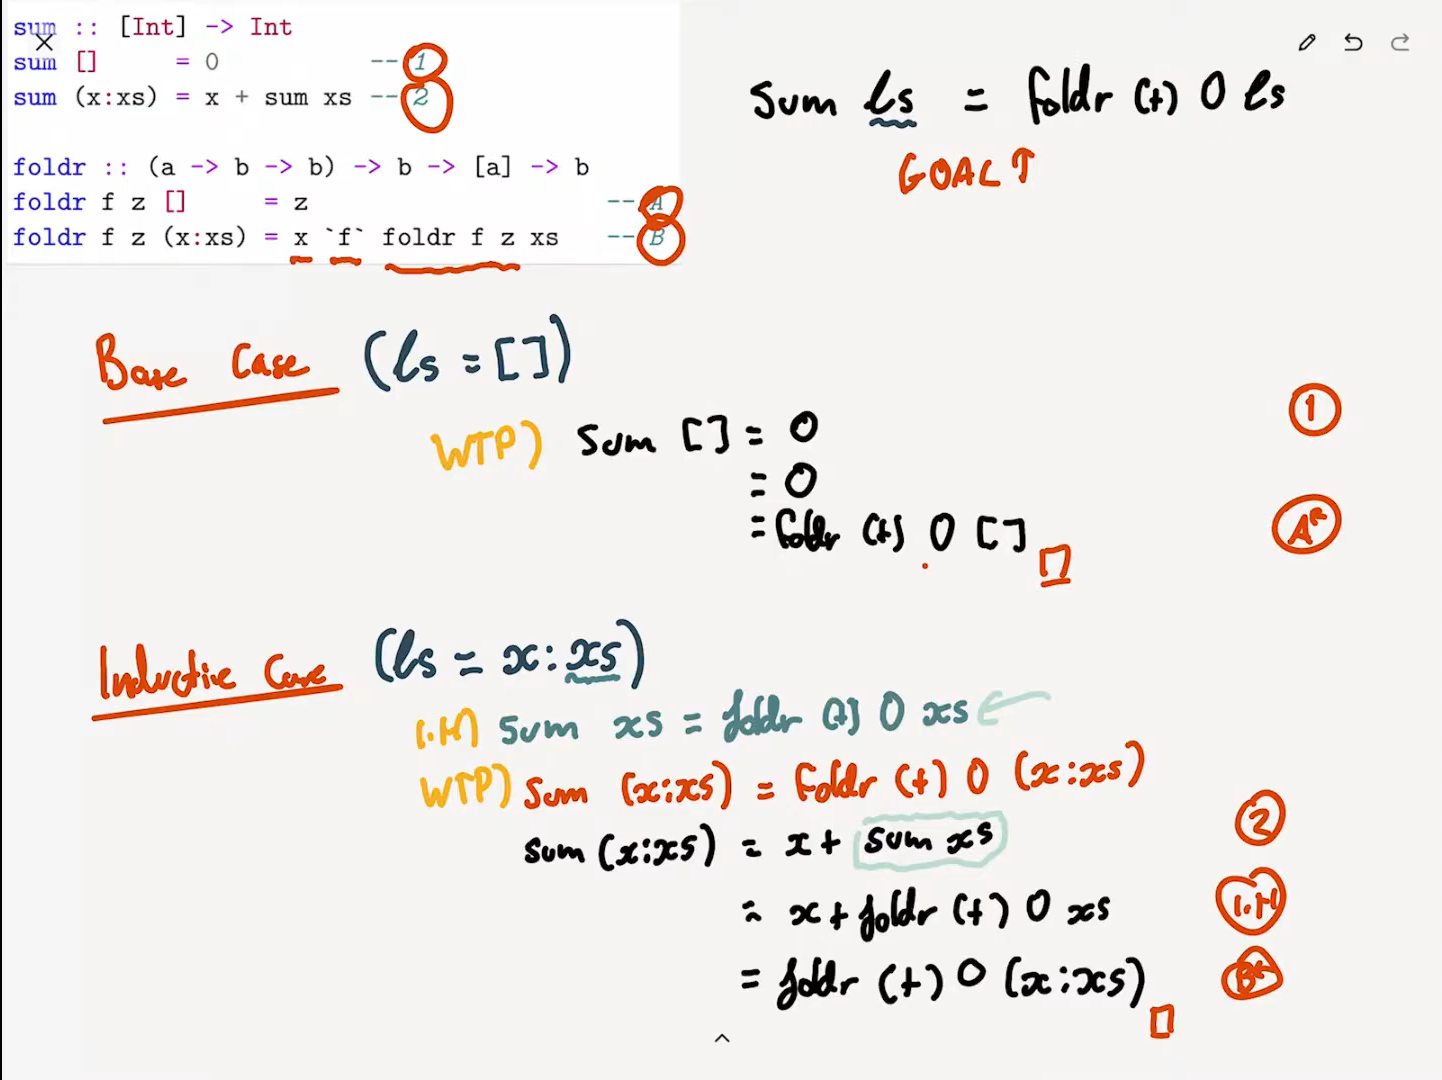 sum :: [Int] -> Int
sum [] = 0 -- 1
sum (x:xs) = x + sum xs -- 2
foldr :: (a -> b -> b) -> b -> [a] -> b
foldr f z [] = z -- A
foldr f z (x:xs) = x `f` foldr f z xs -- B
sum ls = foldr (+) 0 ls
GOAL ↑
Base Case (ls = [])
WTP) sum [] = 0 1
= 0
= foldr (+) 0 [] A
Inductive Case (ls = x:xs)
I.H) sum xs = foldr (+) 0 xs
WTP) sum (x:xs) = foldr (+) 0 (x:xs)
sum (x:xs) = x + sum xs 2
= x + foldr (+) 0 xs I.H
= foldr (+) 0 (x:xs) B